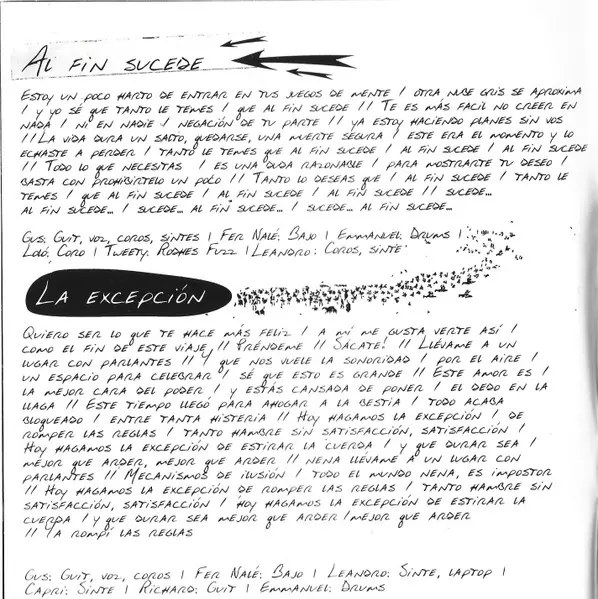 AL FIN SUCEDE
ESTOY UN POCO HARTO DE ENTRAR EN TUS JUEGOS DE MENTE / OTRA NUBE GRIS SE APROXIMA
/ Y YO SÉ QUE TANTO LE TEMES / QUE AL FIN SUCEDE // TE ES MÁS FACIL NO CREER EN
NADA / NI EN NADIE / NEGACIÓN DE TU PARTE // YA ESTOY HACIENDO PLANES SIN VOS
// LA VIDA DURA UN SALTO, QUEDARSE, UNA MUERTE SEGURA / ESTE ERA EL MOMENTO Y LO
ECHASTE A PERDER / TANTO LE TEMES QUE AL FIN SUCEDE / AL FIN SUCEDE / AL FIN SUCEDE
// TODO LO QUE NECESITAS / ES UNA DUDA RAZONABLE / PARA MOSTRARTE TU DESEO /
BASTA CON PROHIBIRTELO UN POCO // TANTO LO DESEAS QUE AL FIN SUCEDE / TANTO LE
TEMES / QUE AL FIN SUCEDE / AL FIN SUCEDE / AL FIN SUCEDE // SUCEDE...
AL FIN SUCEDE... / SUCEDE... AL FIN SUCEDE... / SUCEDE... AL FIN SUCEDE...
GUS: GUIT, VOZ, COROS, SINTES | FER NALÉ: BAJO | EMMANUEL: DRUMS |
LOLÓ: CORO | TWEETY: RODHES FUZZ | LEANDRO: COROS, SINTE
LA EXCEPCIÓN
QUIERO SER LO QUE TE HACE MÁS FELIZ / A MÍ ME GUSTA VERTE ASÍ /
COMO EL FIN DE ESTE VIAJE // PRÉNDEME // SÁCATE! // LLÉVAME A UN
LUGAR CON PARLANTES // Y QUE NOS VUELE LA SONORIDAD / POR EL AIRE /
UN ESPACIO PARA CELEBRAR / SÉ QUE ESTO ES GRANDE // ESTE AMOR ES /
LA MEJOR CARA DEL PODER / Y ESTÁS CANSADA DE PONER / EL DEDO EN LA
LLAGA // ESTE TIEMPO LLEGÓ PARA AHOGAR A LA BESTIA / TODO ACABA
BLOQUEADO / ENTRE TANTA HISTERIA // HOY HAGAMOS LA EXCEPCIÓN / DE
ROMPER LAS REGLAS / TANTO HAMBRE SIN SATISFACCIÓN, SATISFACCIÓN /
HOY HAGAMOS LA EXCEPCIÓN DE ESTIRAR LA CUERDA / Y QUE DURAR SEA /
MEJOR QUE ARDER, MEJOR QUE ARDER // NENA LLÉVAME A UN LUGAR CON
PARLANTES // MECANISMOS DE ILUSIÓN / TODO EL MUNDO NENA, ES IMPOSTOR
// HOY HAGAMOS LA EXCEPCIÓN DE ROMPER LAS REGLAS / TANTO HAMBRE SIN
SATISFACCIÓN, SATISFACCIÓN / HOY HAGAMOS LA EXCEPCIÓN DE ESTIRAR LA
CUERDA / Y QUE DURAR SEA MEJOR QUE ARDER / MEJOR QUE ARDER
// YA ROMPÍ LAS REGLAS
GUS: GUIT, VOZ, COROS | FER NALÉ: BAJO | LEANDRO: SINTE, LAPTOP |
CAPRI: SINTE | RICHARD: GUIT | EMMANUEL: DRUMS